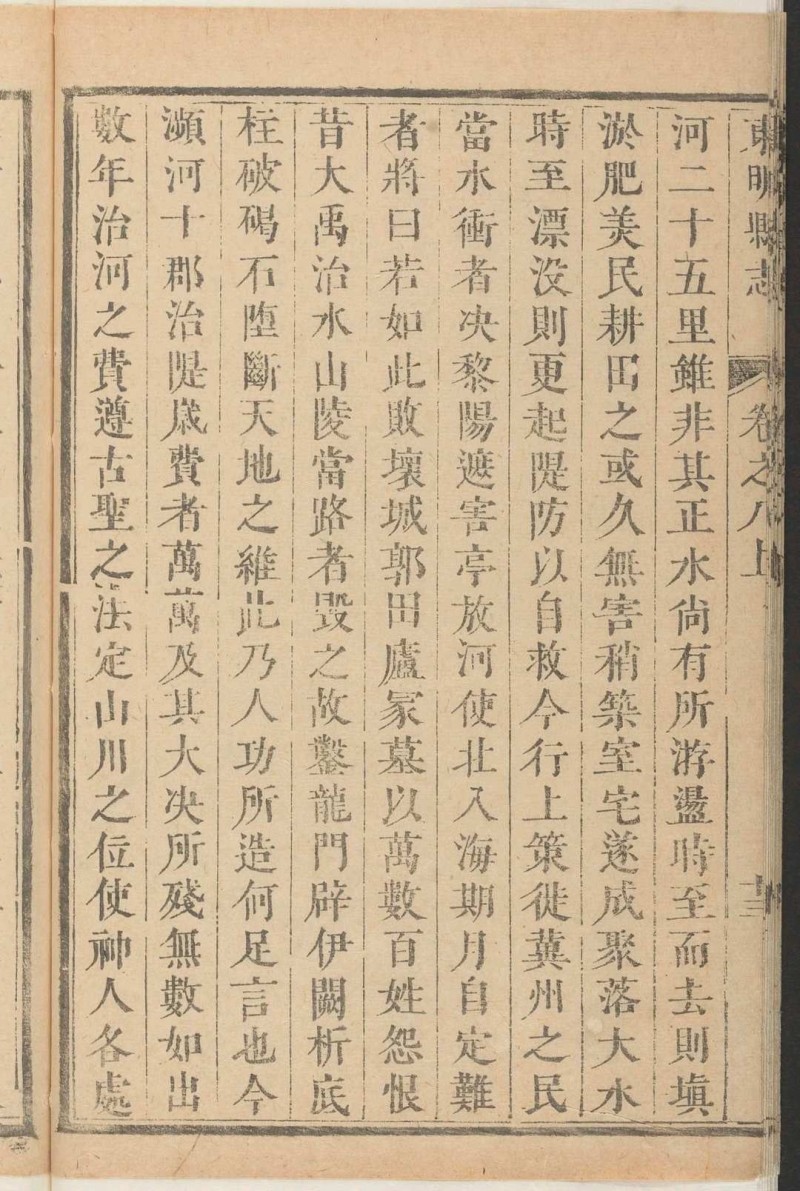 東明縣志
卷之八上
河二十五里雖非其正水尙有所游盪時至而去則塡
淤肥美民耕田之或久無害稍築室宅遂成聚落大水
時至漂沒則更起隄防以自救今行上策徙冀州之民
當水衝者决黎陽遮害亭放河使北入海期月自定難
者將曰若如此敗壞城郭田廬冢墓以萬數百姓怨恨
昔大禹治水山陵當路者毀之故鑿龍門辟伊闕析底
柱破碣石墮斷天地之維此乃人功所造何足言也今
瀕河十郡治隄歲費者萬萬及其大决所殘無數如出
數年治河之費遵古聖之法定山川之位使神人各處